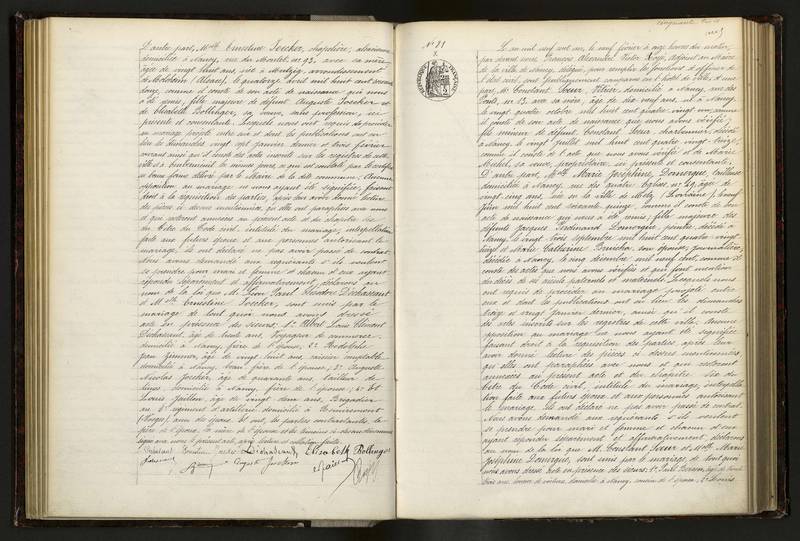 D'autre part, M^elle Ernestine Joecker, chapelière, alsacienne
domiciliée à Nancy, rue du Montet, n° 92, avec sa mère
âgée de vingt huit ans, née à Mutzig, arrondissement
de Molsheim (Alsace), le quatorze avril mil huit cent soixante
douze, comme il conste de son acte de naissance qui nous
a été remis, fille majeure de défunt Auguste Joecker et
de Elisabeth Bollinger, sa veuve, sans profession, ici
présente et consentante. Lesquels nous ont requis de procéder
au mariage projeté entre eux et dont les publications ont eu
lieu les dimanches vingt sept janvier dernier et trois février
opposition au mariage ne nous ayant été signifiée, faisant
droit à la réquisition des parties, après leur avoir donné lecture
des pièces ci dessus mentionnées, qu'elles ont paraphées avec nous
et qui resteront annexées au présent acte et du chapitre six
du titre du Code civil, intitulé du mariage, interpellation
faite aux futurs époux et aux personnes autorisant le
mariage, ils ont déclaré ne pas avoir passé de contrat
Nous avons demandé aux requérants s'ils voulaient
se prendre pour mari et femme et chacun d'eux ayant
répondu séparément et affirmativement, déclarons au
nom de la loi que M. Léon Paul Théodore Dechassant
et M^elle Ernestine Joecker, sont unis par le
mariage de tout quoi nous avons dressé
acte en présence des sieurs: 1° Albert Louis Clément
Dechassant, âgé de trente ans, voyageur de commerce
domicilié à Nancy, frère de l'époux; 2° Rodolphe
domicilié à Nancy, ami de l'époux; 3° Auguste
Nicolas Joecker, âgé de quarante ans, tailleur de
limes, domicilié à Nancy, frère de l'épouse; 4° et
Louis Jaillon, âgé de vingt deux ans, Brigadier
au 6e régiment d'artillerie, domicilié à Remiremont
(Vosges), ami des époux. Et ont, les parties contractantes, la
signé avec nous le présent acte, après lecture et collation faite.
Elisabeth Bollinger
Auguste Joecker
N° 81
RÉPUBLIQUE FRANÇAISE
L'an mil neuf cent un, le neuf février à onze heures du matin,
par devant nous, François Alexandre Victor adjoint au Maire
de la ville de Nancy, délégué pour remplir les fonctions d'officier de
l'état civil, sont publiquement comparus en l'hôtel de ville, d'une
part, M. Constant Soeur, domicilié à Nancy, rue des
Ponts, n° 13, avec sa mère, âgé de dix neuf ans, né à Nancy,
le vingt quatre octobre mil huit cent quatre vingt un, comme
il conste de son acte de naissance que nous avons vérifié,
fils mineur de défunt Constant Soeur, charbonnier, décédé
à Nancy, le vingt juillet mil huit cent quatre-vingt-treize,
comme il conste de l'acte que nous avons vérifié et de Marie
sa veuve, propriétaire, ici présente et consentante.
D'autre part, M^elle Marie Joséphine Domergue, tailleuse
domiciliée à Nancy, rue des Quatre Eglises, n° 49, âgée de
vingt cinq ans, née en la ville de Metz (Lorraine), le neuf
juin mil huit cent soixante quinze, comme il conste de son
acte de naissance qui nous a été remis, fille majeure des
défunts Jacques Ferdinand Domergue, peintre, décédé à
Nancy, le vingt trois septembre mil huit cent quatre vingt
et Marie Catherine son épouse, journalière,
décédée à Nancy, le cinq décembre mil neuf cent, comme il
conste des actes que nous avons vérifiés et qui font mention
des décès de ses aïeuls paternels et maternels. Lesquels nous
ont requis de procéder au mariage projeté entre
eux et dont les publications ont eu lieu les dimanches
treize et vingt janvier dernier, ainsi qu'il conste
des actes inscrits sur les registres de cette ville; aucune
opposition au mariage ne nous ayant été signifiée
faisant droit à la réquisition des parties, après leur
avoir donné lecture des pièces ci dessus mentionnées
qu'elles ont paraphées avec nous et qui resteront
annexées au présent acte et du chapitre six du
titre du Code civil, intitulé du mariage, interpellation
faite aux futurs époux et aux personnes autorisant
le mariage, ils ont déclaré ne pas avoir passé de contrat
Nous avons demandé aux requérants s'ils voulaient
se prendre pour mari et femme et chacun d'eux
ayant répondu séparément et affirmativement, déclarons
au nom de la loi que M. Constant Soeur et M^elle Marie
Joséphine Domergue, sont unis par le mariage, de tout quoi
nous avons dressé acte en présence des sieurs: 1° Paul
trois ans, domicilié à Nancy, cousin de l'époux; 2° Louis